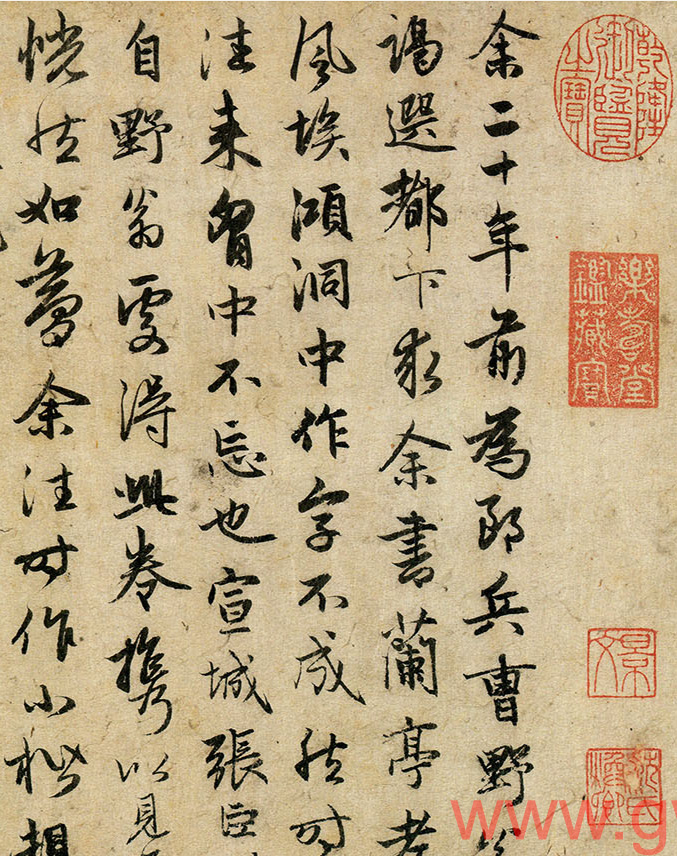 乾隆御覽之寶
樂壽堂鑑藏寶
余二十年前為郎兵曹野
謁選都下求余書蘭亭考
風埃澒洞中作字不成然時
往來胷中不忘也宣城張臣
自野翁處得此卷攜以見
恍然如夢余往時作小楷規
www.g